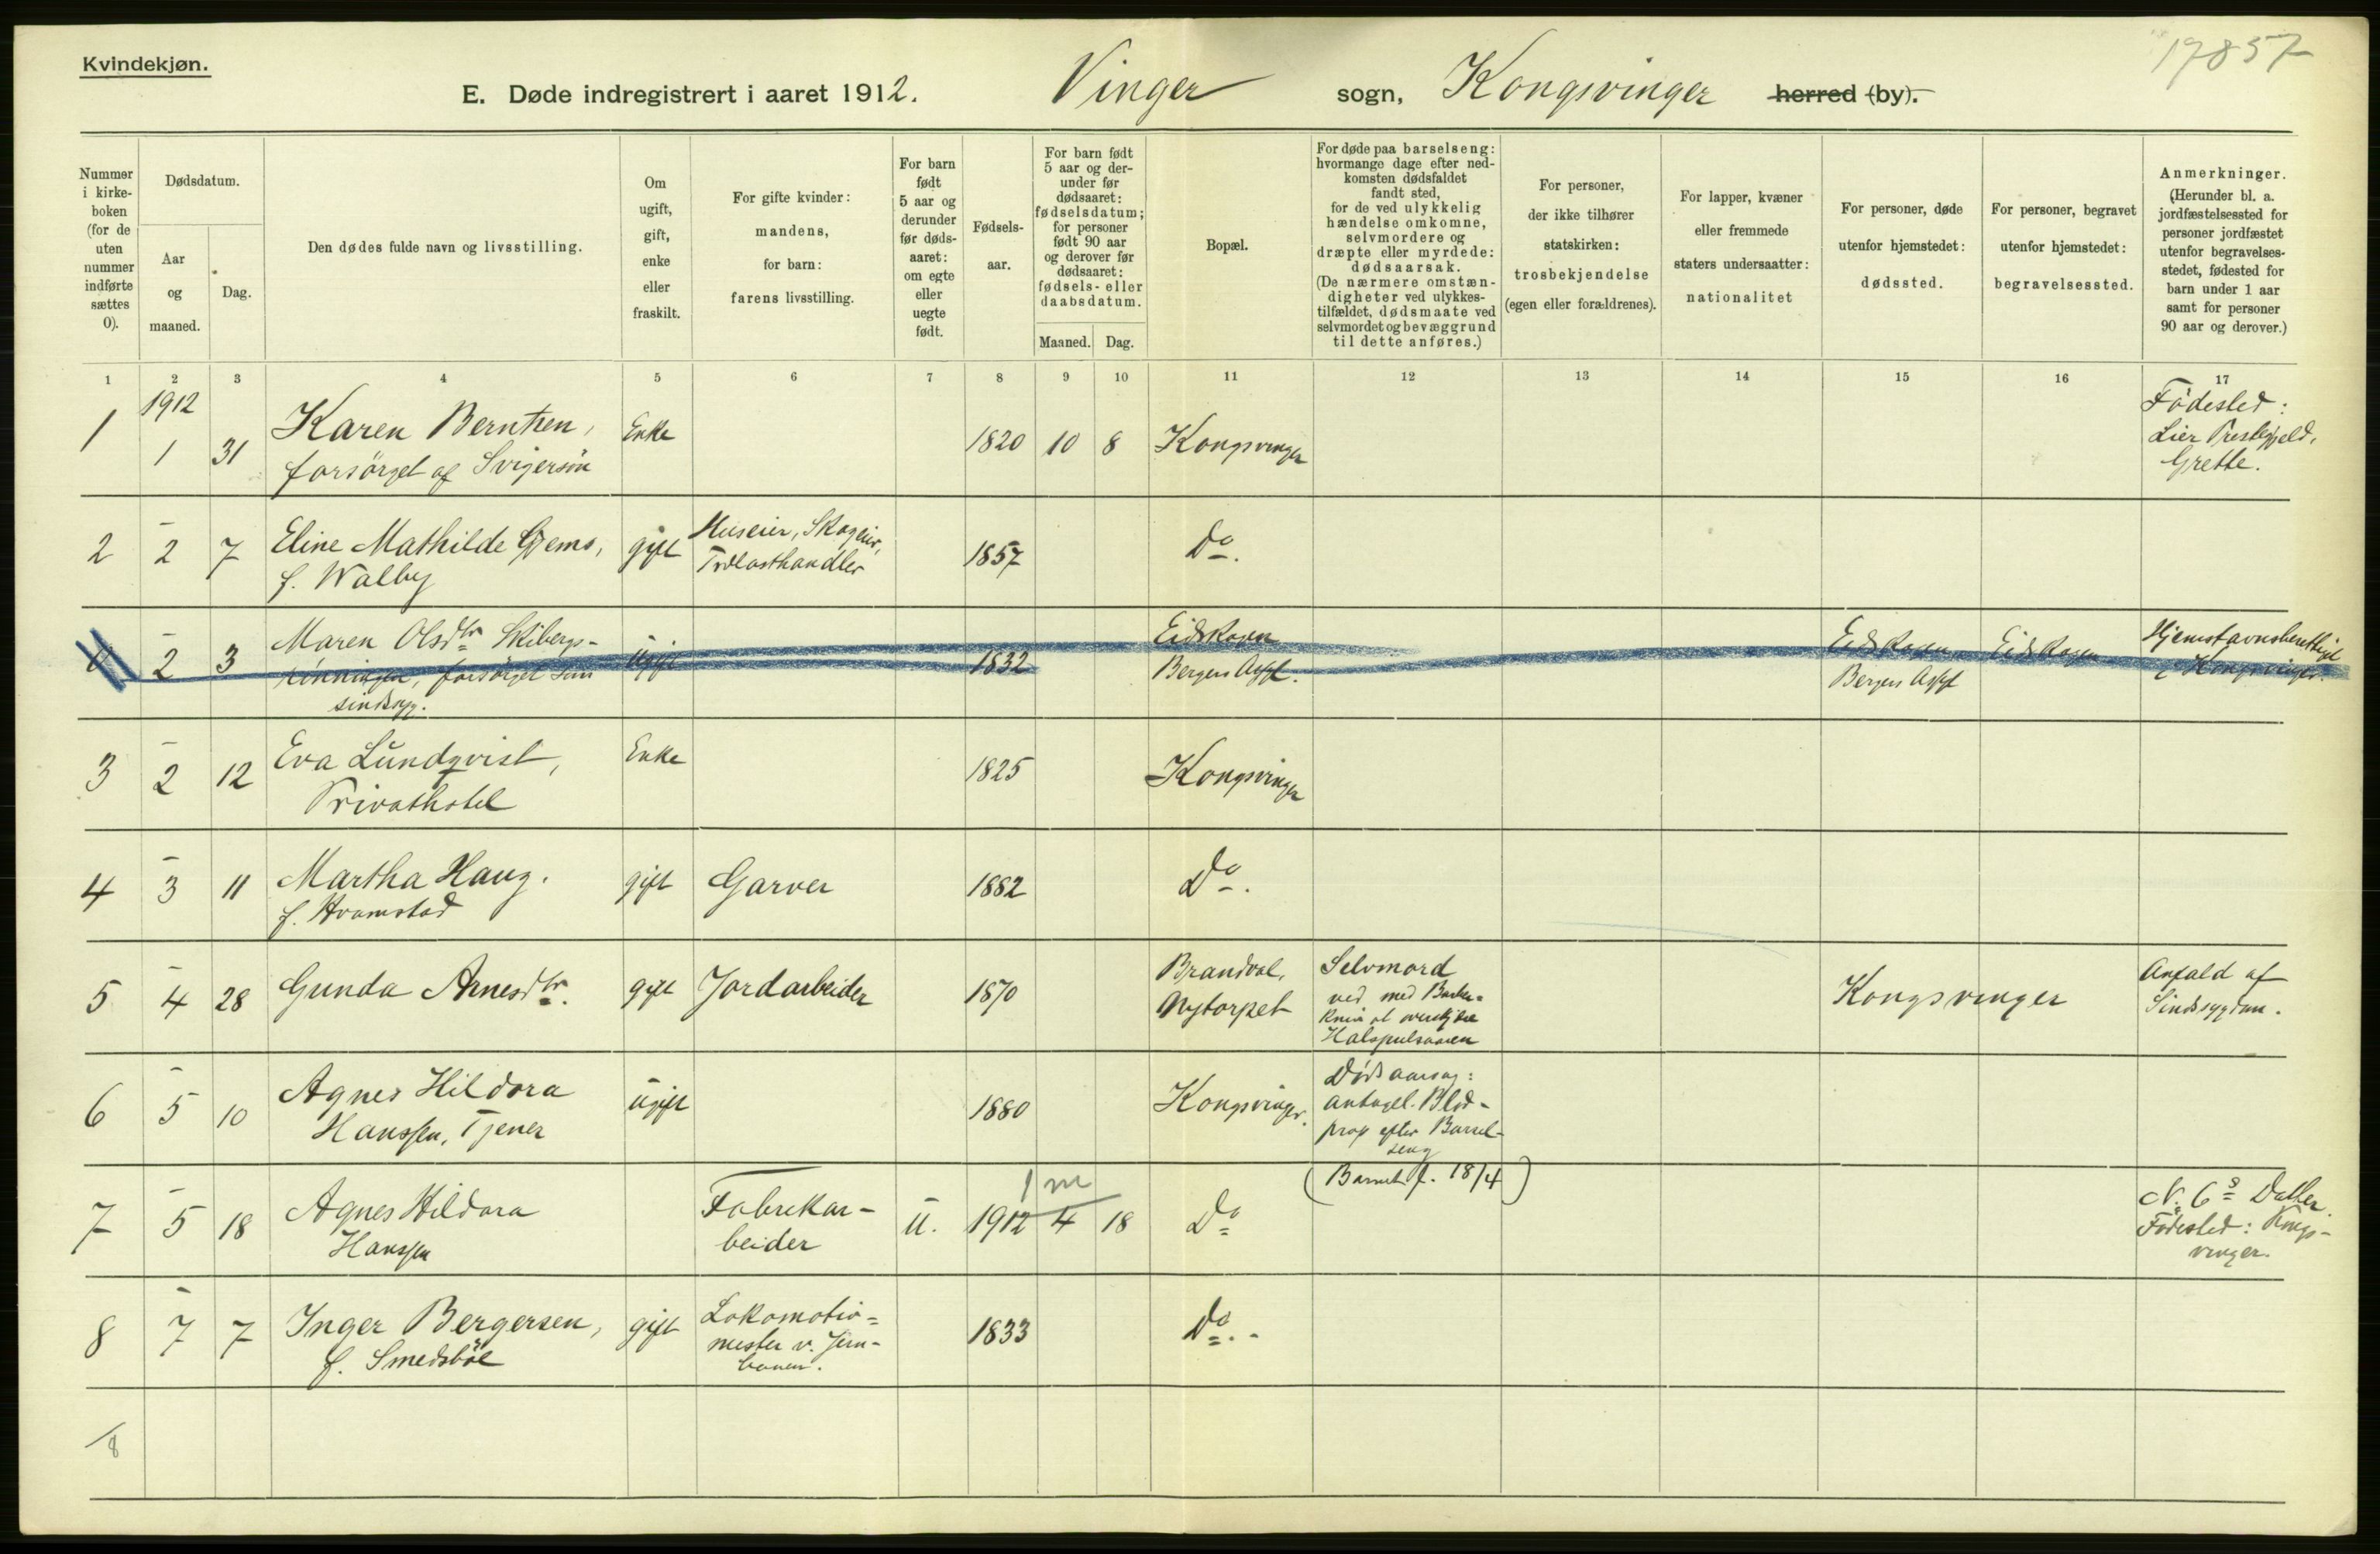 Kvindekjøn.
17857
E. Døde indregistrert i aaret 1912. Vinger sogn, Kongsvinger herred (by).
Nummer i kirke-boken (for de uten nummer indførte sættes 0).
Dødsdatum.
Aar og maaned.
Dag.
Den dødes fulde navn og livsstilling.
Om ugift, gift, enke eller fraskilt.
For gifte kvinder: mandens, for barn: farens livsstilling.
For barn født 5 aar og derunder før døds-aaret: om egte eller uegte født.
Fødsels-aar.
For barn født 5 aar og der-under før dødsaaret: fødselsdatum; for personer født 90 aar og derover før dødsaaret: fødsels- eller daabsdatum.
Maaned. Dag.
Bopæl.
For døde paa barselseng: hvormange dage efter ned-komsten dødsfaldet fandt sted, for de ved ulykkelig hændelse omkomne, selvmordere og dræpte eller myrdede: dødsaarsak. (De nærmere omstæn-digheter ved ulykkes-tilfældet, dødsmaate ved selvmordet og bevæggrund til dette anføres.)
For personer, der ikke tilhører statskirken: trosbekjendelse (egen eller forældrenes).
For lapper, kvæner eller fremmede staters undersaatter: nationalitet
For personer, døde utenfor hjemstedet: dødssted.
For personer, begravet utenfor hjemstedet: begravelsessted.
Anmerkninger. (Herunder bl. a. jordfæstelsessted for personer jordfæstet utenfor begravelses-stedet, fødested for barn under 1 aar samt for personer 90 aar og derover.)
1 2 3 4 5 6 7 8 9 10 11 12 13 14 15 16 17
1912
1 1 31 Karen Berntsen, Enke 1820 10 8 Kongsvinger Fødested:
forsörget af Svigersön Lier Prestegjeld,
Grette.
2 – 2 7 Eline Mathilde Gjems, gift Huseier, Skogeier, 1857 Do.
f. Walby Trælasthandler
0 – 2 3 Maren Olsdtr Skibergs- ugift 1832 Eidskogen Eidskogen Eidskogen Hjemstavnsberettiget
rönningen, forsörget som Bergers Asyl. Bergers Asyl i Kongsvinger.
sindssyg.
3 – 2 12 Eva Lundqvist, Enke 1825 Kongsvinger
Privathotel
4 – 3 11 Martha Haug. gift Garver 1882 Do.
f. Hvamstad
5 – 4 28 Gunda Arnesdtr. gift Jordarbeider 1870 Brandval, Selvmord Kongsvinger Anfald af
Nytorpet ved med Barber- Sindssygdom.
kniv at overskjære
Halspulsaaren
6 – 5 10 Agnes Hildora ugift 1880 Kongsvinger. Dödsaarsag:
Hanssen, Tjener antagel. Blod-
prop efter Barsel-
seng
(Barnet f. 18/4)
1 m
7 – 5 18 Agnes Hildora Fabrikar- u. 1912 4 18 Do N. 6s Datter.
Hanssen beider Födested: Kongs-
vinger.
8 – 7 7 Inger Bergersen, gift Lokomotiv- 1833 Do.
f. Smedsböl mester v. Jern-
banen.
8